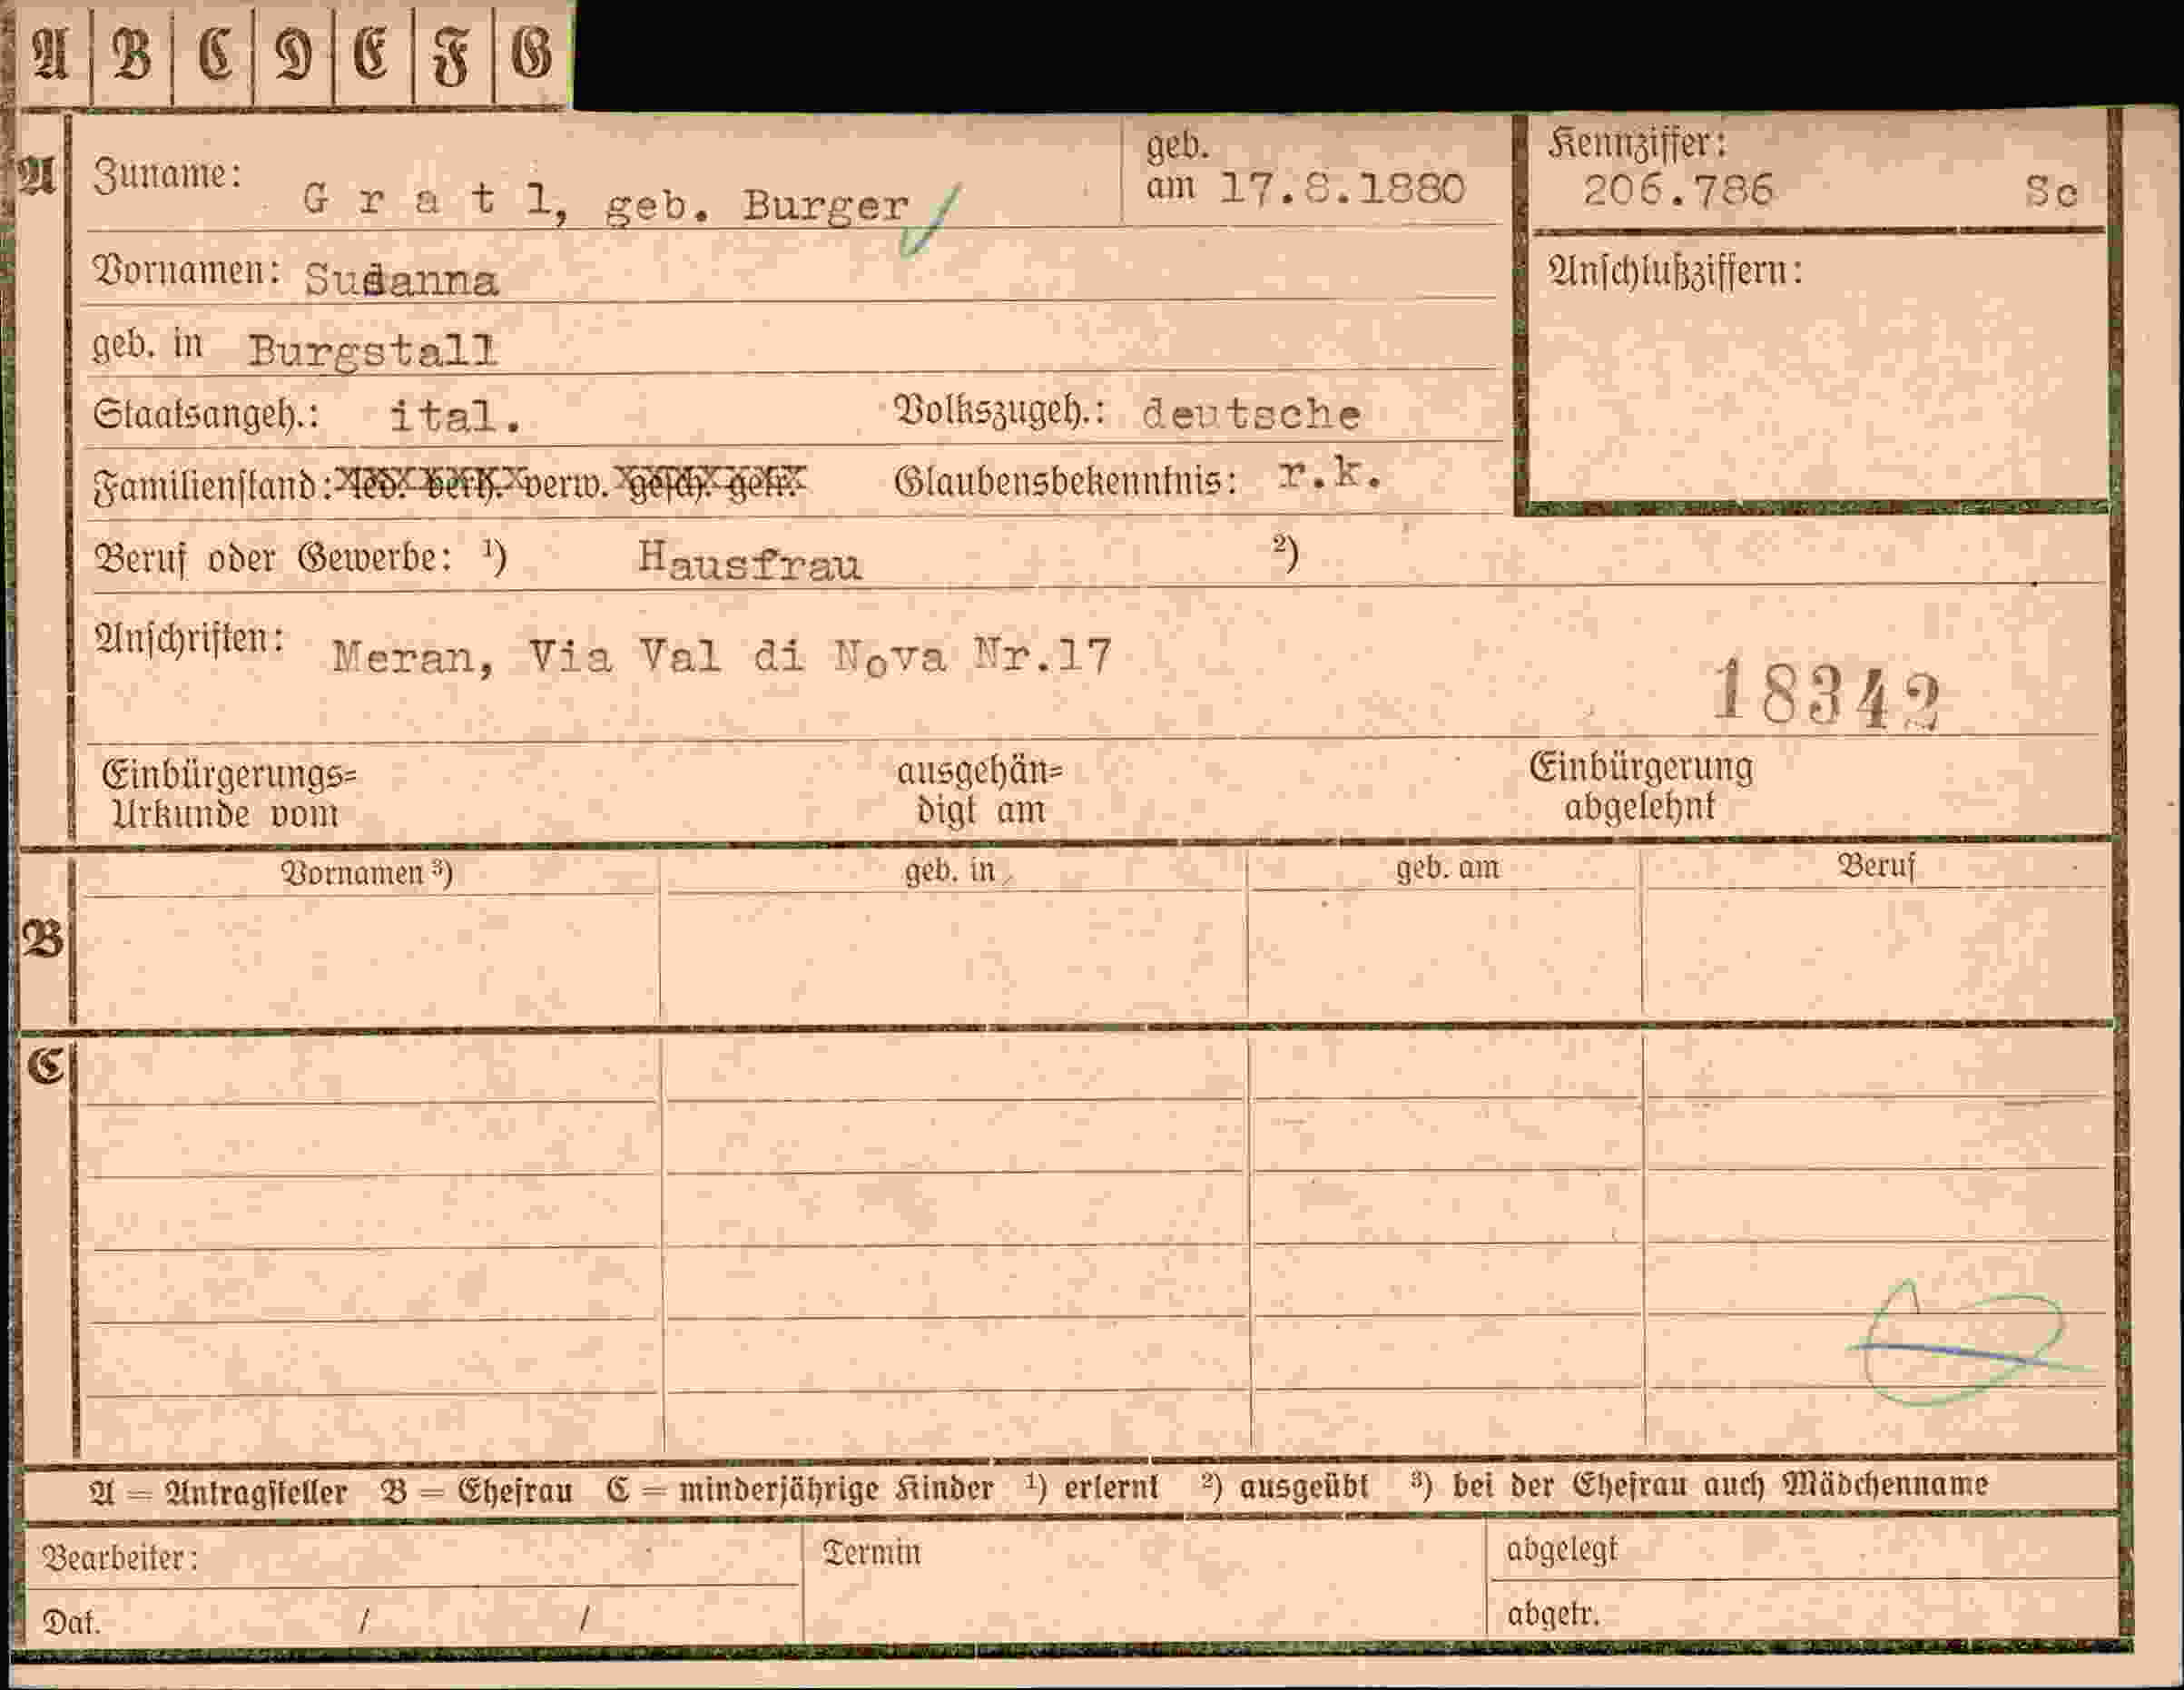 A B C D E F G
A
Zuname: G r a t l, geb. Burger
geb. am 17.8.1880
Kennziffer: 206.786 Sc
Vornamen: Susanna
Anschlußziffern:
geb. in Burgstall
Staatsangeh.: ital. Volkszugeh.: deutsche
Familienstand: led. verh. verw. gesch. getr. Glaubensbekenntnis: r.k.
Beruf oder Gewerbe: ¹) Hausfrau ²)
Anschriften: Meran, Via Val di Nova Nr.17
18342
Einbürgerungs= ausgehän= Einbürgerung
Urkunde vom digt am abgelehnt
Vornamen ³) geb. in geb. am Beruf
B
C
A = Antragsteller B = Ehefrau C = minderjährige Kinder ¹) erlernt ²) ausgeübt ³) bei der Ehefrau auch Mädchenname
Bearbeiter: Termin abgelegt
Dat. / / abgetr.